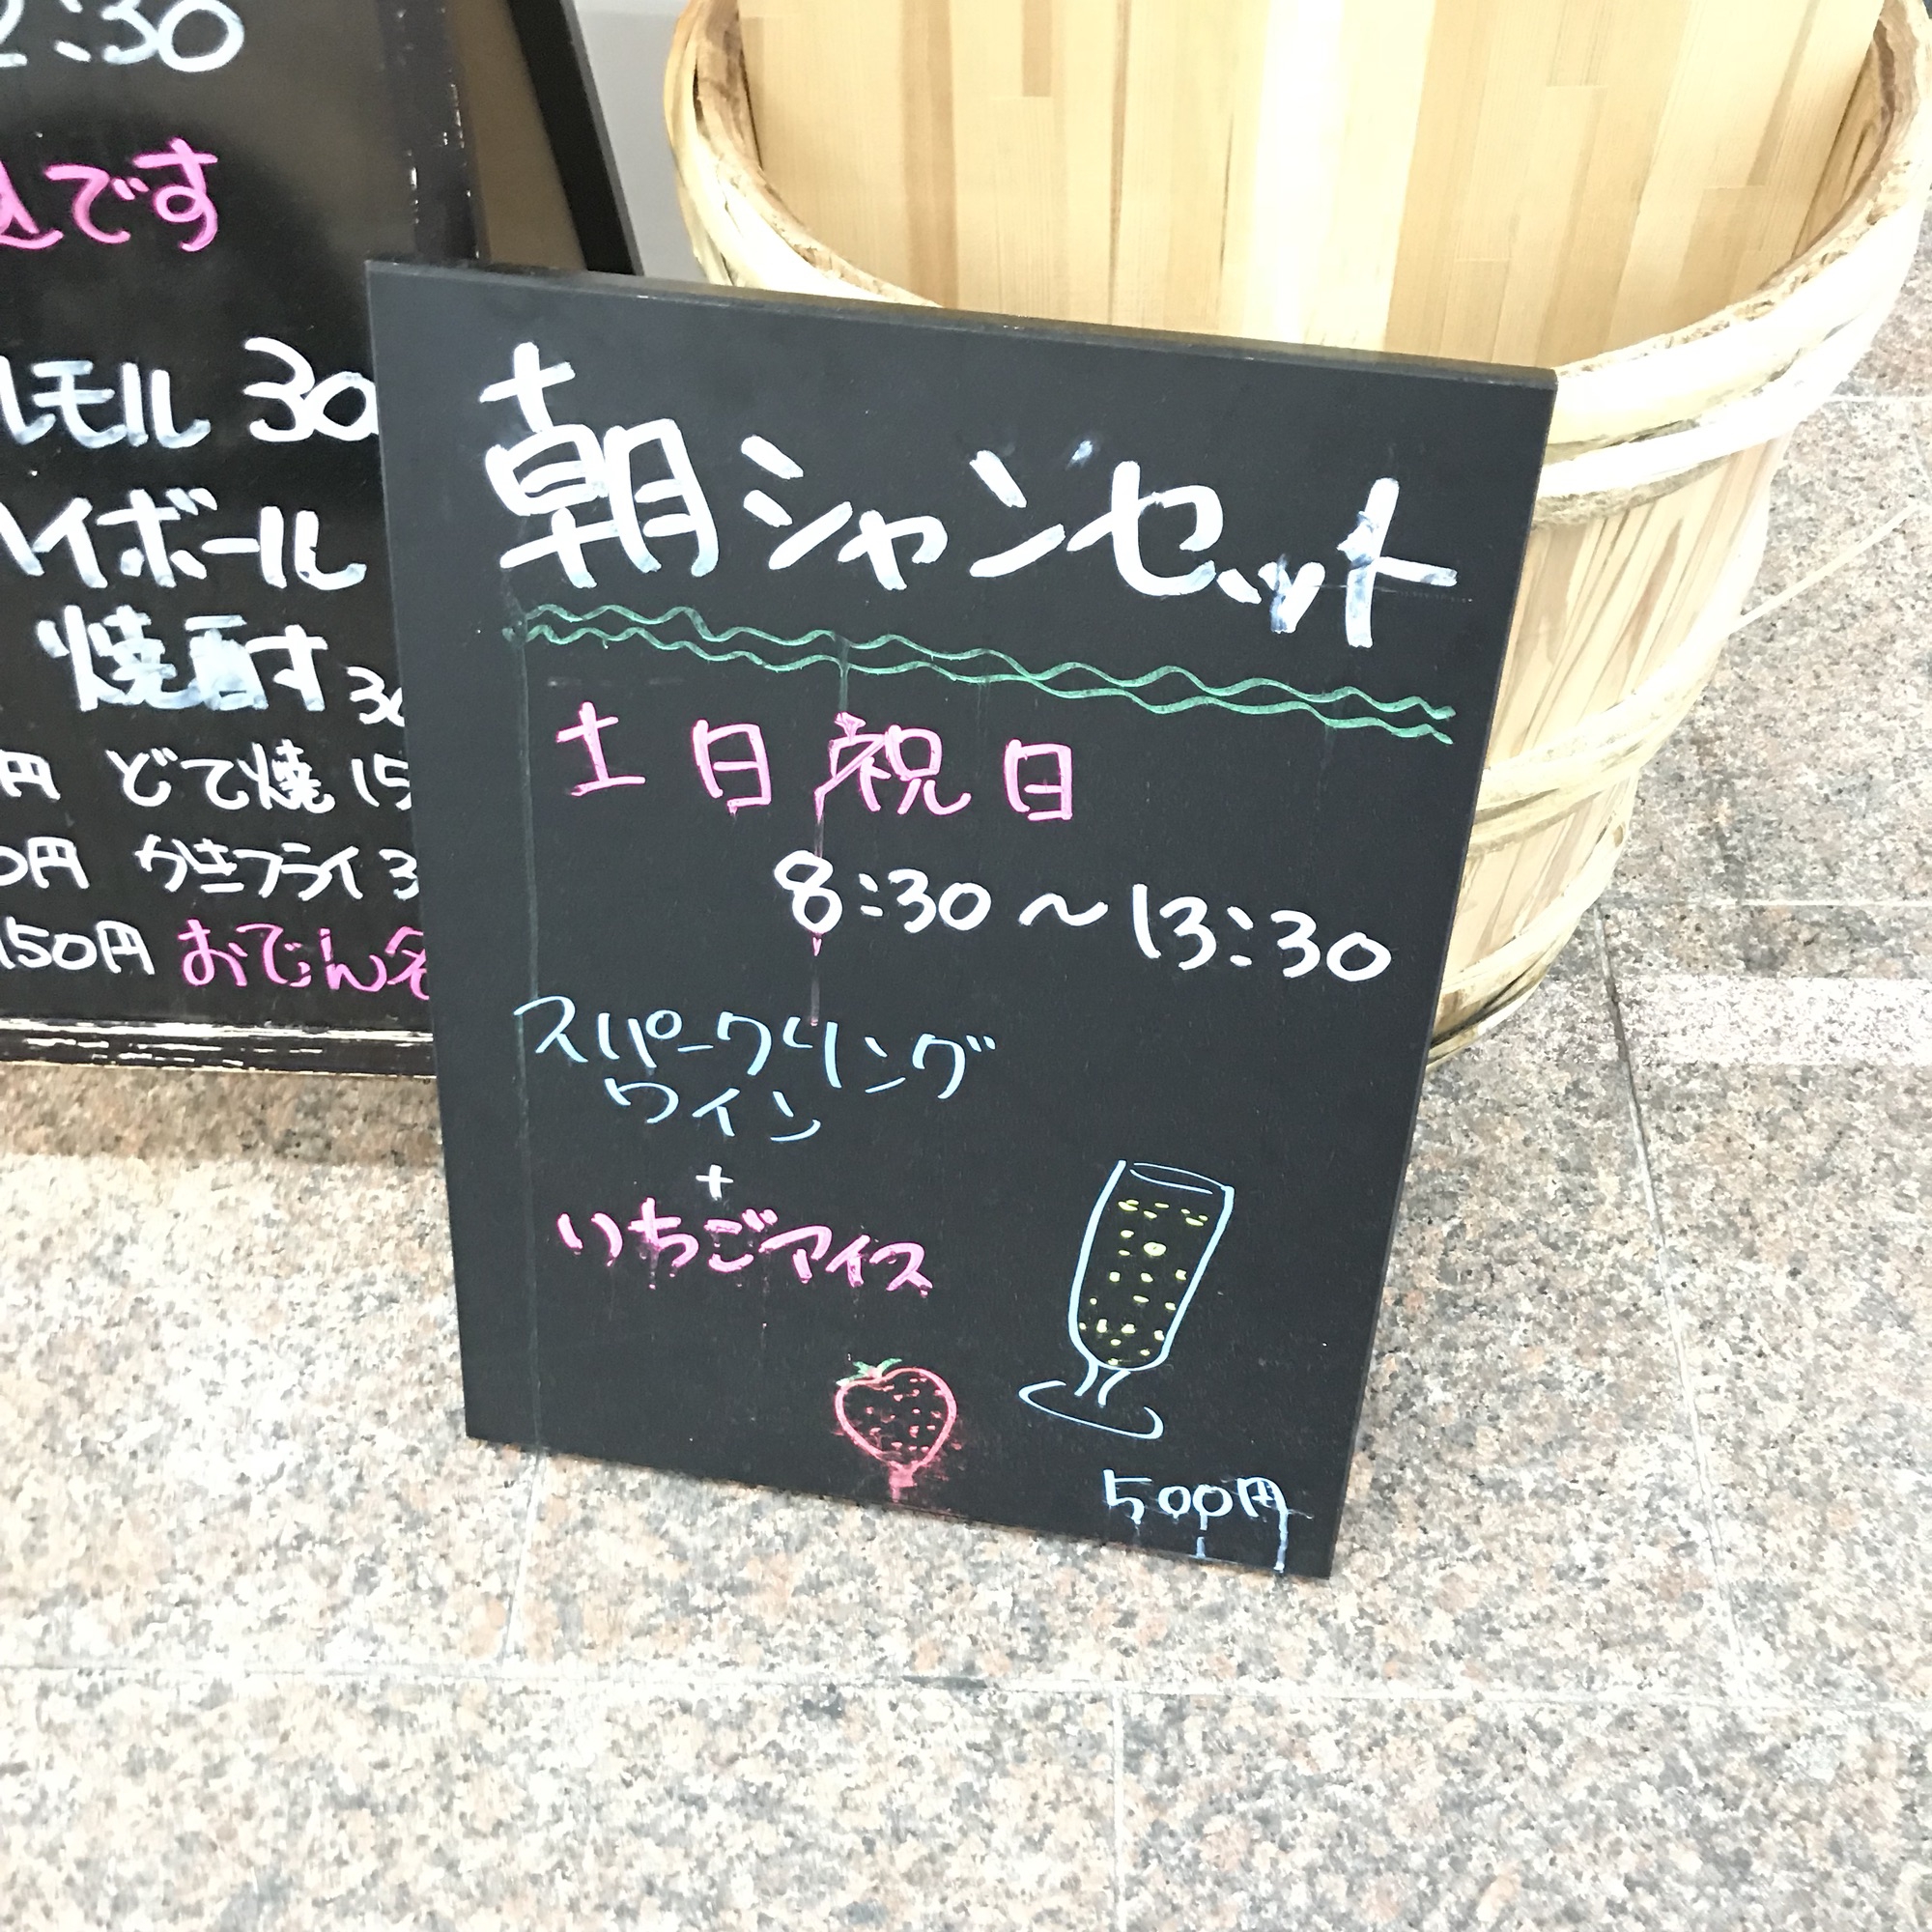 2:30
込です
ルモル 30
ハイボール
焼酎す 30
円 どて焼 15
0円 かきフライ 3
150円 おでん各
朝シャンセット
土日祝日
8:30～13:30
スパークリング
ワイン
+
いちごアイス
500円